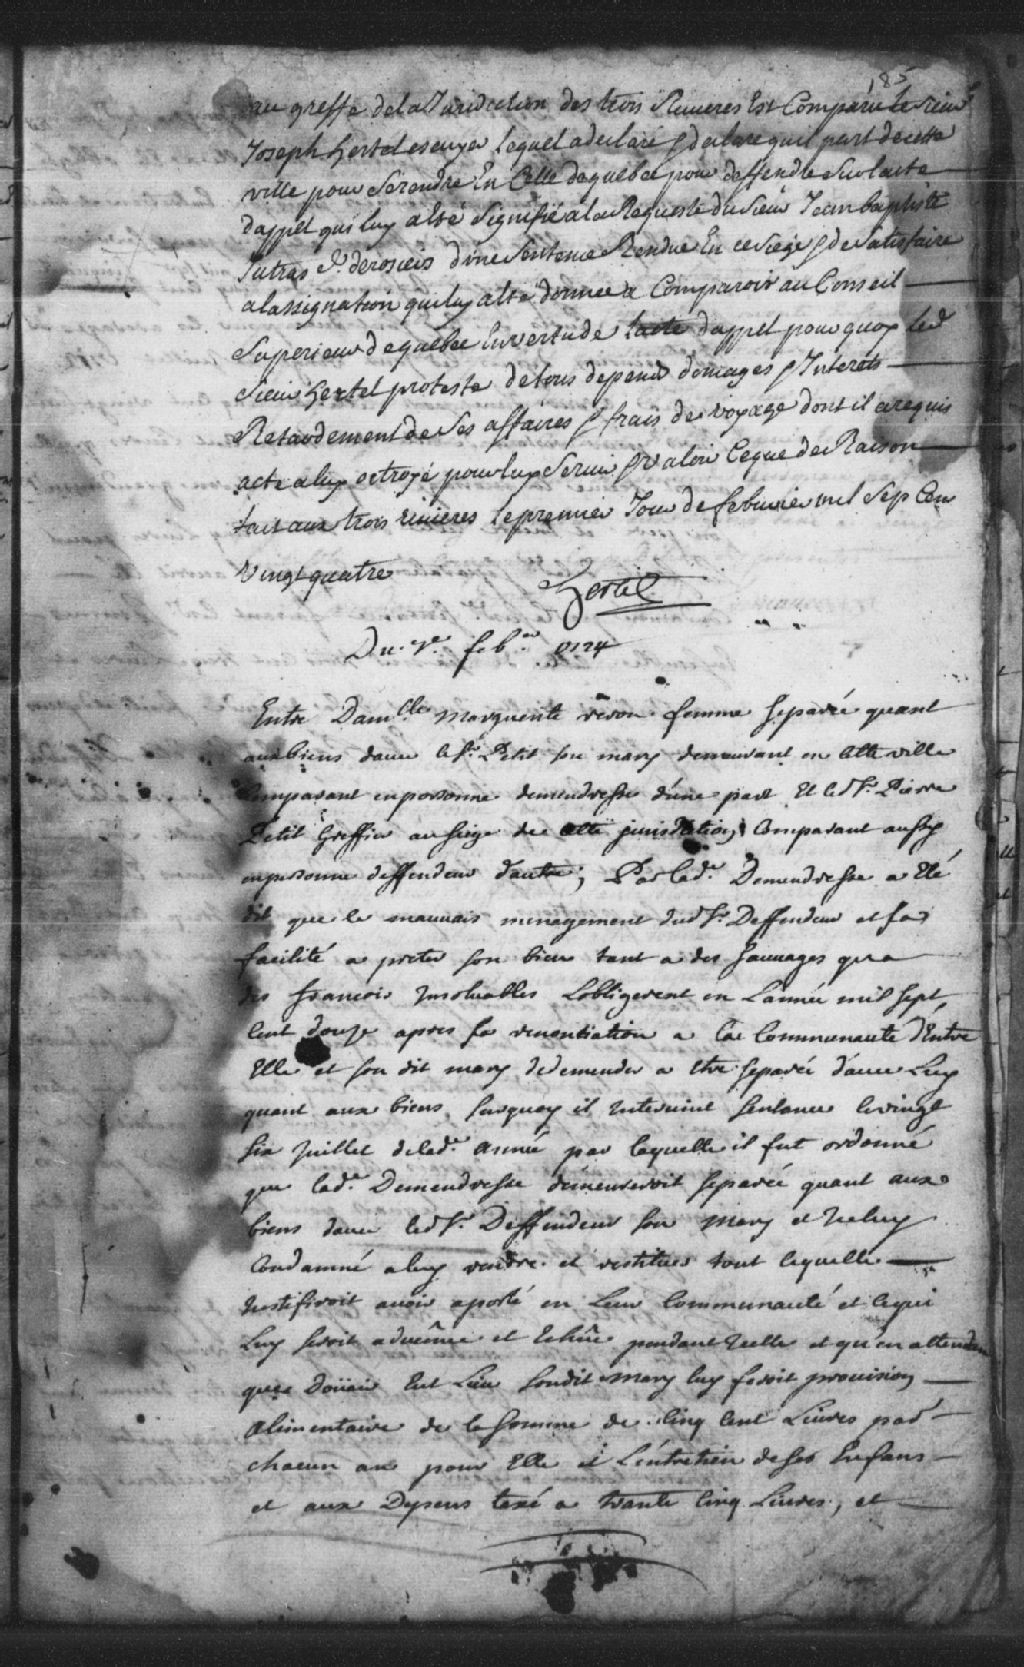 185
au greffe de la Juridiction des trois Rivieres Est Comparu le sieur
Joseph hertel escuyer lequel a declaré & declare quil part de cette
ville pour se rendre En Celle de quebec pour deffendre sur lacte
dappel qui luy a esté signifié a la Requeste du sieur Jean baptiste
Jutras Sr. derosiers dune sentence Rendue En ce siege & de satisfaire
a lassignation qui luy a esté donnee a Comparoir au Conseil
superieur de quebec En vertu de lacte dappel pourquoy led
sieur hertel proteste de tous depend domages & Interests
Retardement de ses affaires & frais de voyage dont il a requis
acte a luy octroyé pour luy servir & valoir ceque de Raison
fait aux trois rivieres le premier Jour de febvrier mil sept Cen
vingt quatre
Hertel
Du 7e. feber. 1724
Entre Damlle marguerite veron femme separée quant
aux biens davec le Sr. Petit son mary demeurant en cette ville
Comparant en personne demendresse d'une part Et led. Sr. Pierre
Petit Greffier au siege de cette jurisdiction, Comparant aussy
en personne deffendeur d'autre; Par lad. Demendresse a Eté
dit que le mauvais menagement dud. Sr. Deffendeur et sa
facilité a preter son bien tant a des sauvages qu'a
des francois Insolvables Lobligerent en Lannée mil sept
Cent douze apres sa renontiation a la Communauté d'Entre
Elle et son dit mary de demender a etre separée d'avec Luy
quant aux biens surquoy il intervint sentence le vingt
six juillet de lad. année par laquelle il fut ordonné
que lad. Demendresse demeureroit separée quant aux
biens davec led. Sr. Deffendeur son mary et Iceluy
Condamné a luy rendre et restituer tout ce quelle
Justifiroit avoir aporté en Leur Communauté et ce qui
Luy seroit advenue et Echüe pendant Icelle et qu'en attendan
que Doüaire Eut Lieu sondit mary luy feroit provision
Alimentaire de la somme de Cinq Cent Livres par
chacun an pour Elle et L'entretien de ses Enfans
et aux Depens taxé a trante Cinq Livres, et